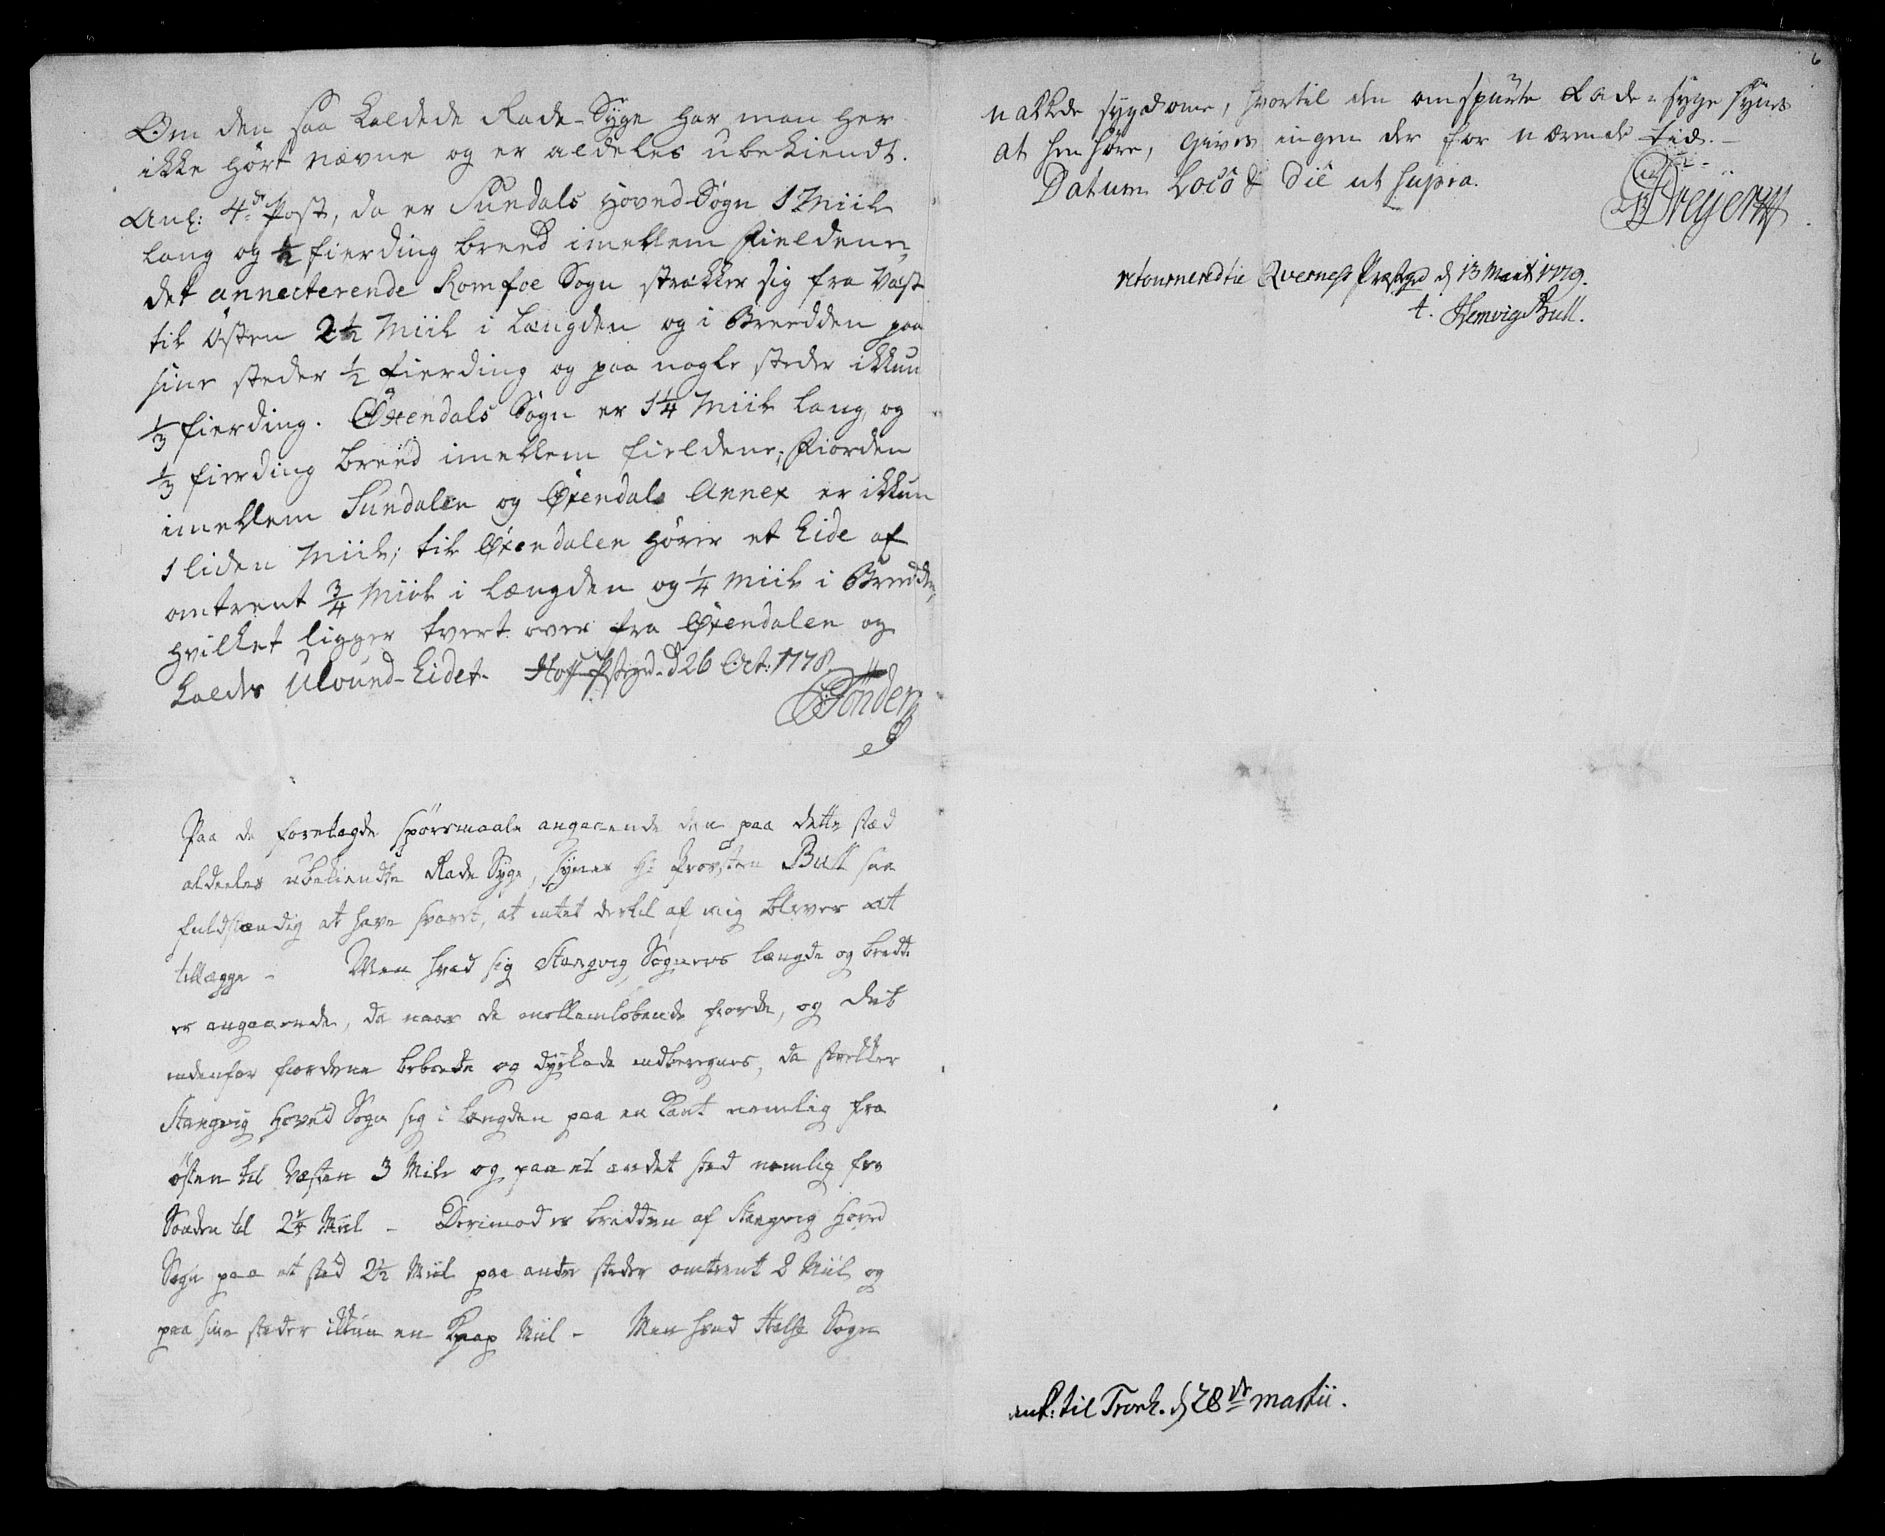 Om den saa kaldede Rade-Syge har man her
ikke hørt nævne og er aldeles ubekiendt.
Anl: 4de Post, da er Sundals Hoved-Sogn 1 Miil
lang og ½ fierding breed imellem Fieldene,
det annecterende Romfoe Sogn strækker sig fra Væst
til Østen 2½ Miil i Længden og i Breedden paa
sine steder ½ fierding og paa nogle steder ikkun
⅓ fierding. Øxendals Sogn er 1¼ Miil lang, og
⅓ fierding breed imellem fieldene; Fiorden
imellem Sundalen og Øxendals Annex er ikkun
1 liden Miil; til Øxendalen hører et Eide af
omtrent ¾ Miil i Længden og ¼ Miil i Bredden,
hvilket ligger tvert over fra Øxendalen og
kaldes Ulvund-Eidet. Hoff Pstgrd. d 26 Oct: 1778
Tønder
Paa de foretagde spørsmaale angaaende den paa dette stæd
aldeeles ubekiendte Rade Syge, synes Hr Provsten Bull saa
fuldstændig at have svaret, at intet dertil af mig bliver at
tillægge - Men hvad sig Stangvig Sognes længde og bredde
er angaaende, da naar de mellemløbende fiorde, og det
indenfor fiordene beboede og dyrkede indberegnes, da strekker
Stangvig Hoved Sogn sig i Længden paa en Kant nemlig fra
østen til væsten 3 Mile og paa et andet sted nemlig fra
Sønden til 2¼ Miil - Derimod er bredden af Stangvig Hoved
Sogn paa et sted 2½ Miil paa andre steder omtrent 2 Miil og
paa sine steder ikkun en knap Miil - Men hvad Halse Sogn
6
nakkede sygdome, hvortil den omspurte Rade-syge synes
at henhøre, gives ingen der for nærende tid.-
Datum Loco & Die ut supra.
Dreyer
retournered fra Qvernes Præstegd d 13 Marti 1779.
t. Henvig Bull.
ank: til Tronh. d 28de martii.